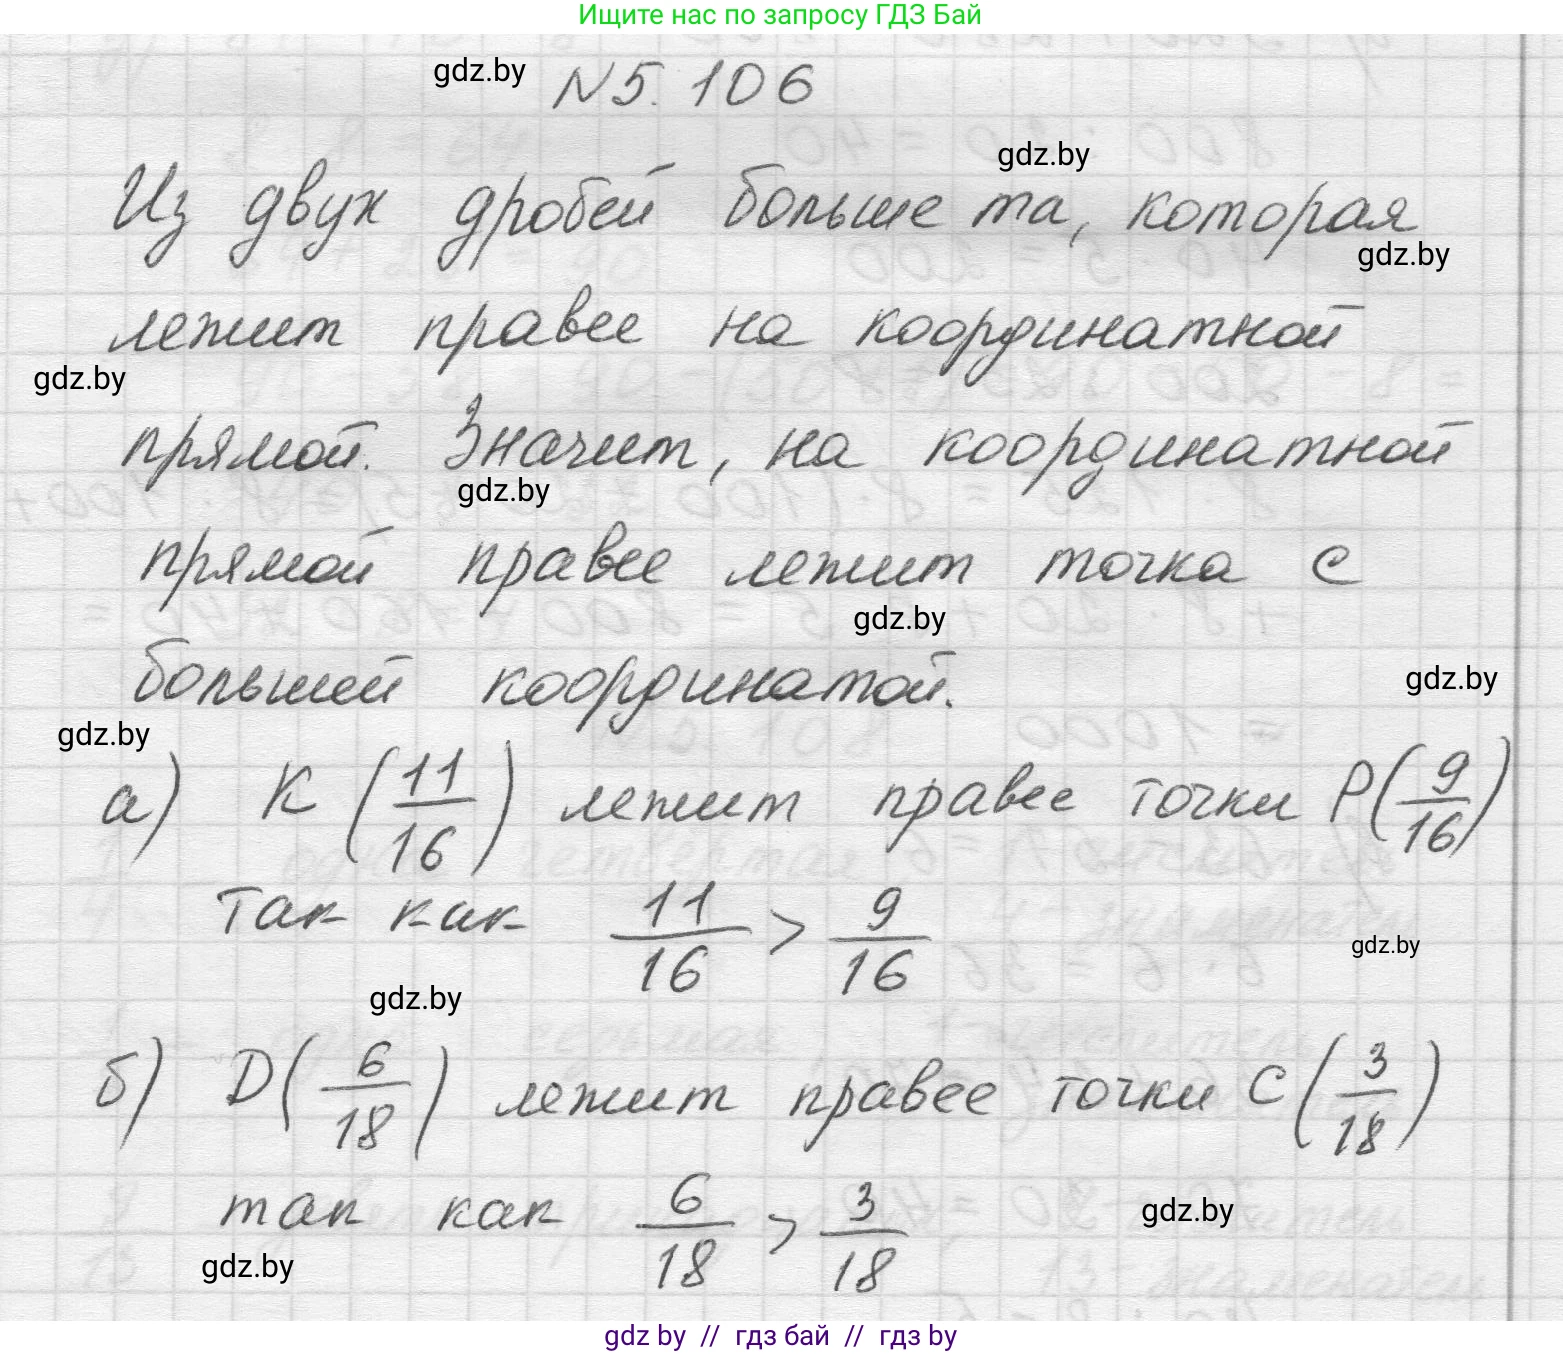 Ищите нас по запросу ГДЗ Бай
gdz.by
N5.106
gdz.by
Из двух дробей больше та, которая
gdz.by
лежит правее на координатной
gdz.by
прямой. Значит, на координатной
gdz.by
прямой правее лежит точка с
gdz.by
большей координатой.
gdz.by
gdz.by
а) K (11/16) лежит правее точки P(9/16)
так как 11/16 > 9/16
gdz.by
gdz.by
б) D(6/18) лежит правее точки C(3/18)
так как 6/18 > 3/18
gdz.by
gdz.by
gdz by // гдз бай // гдз by